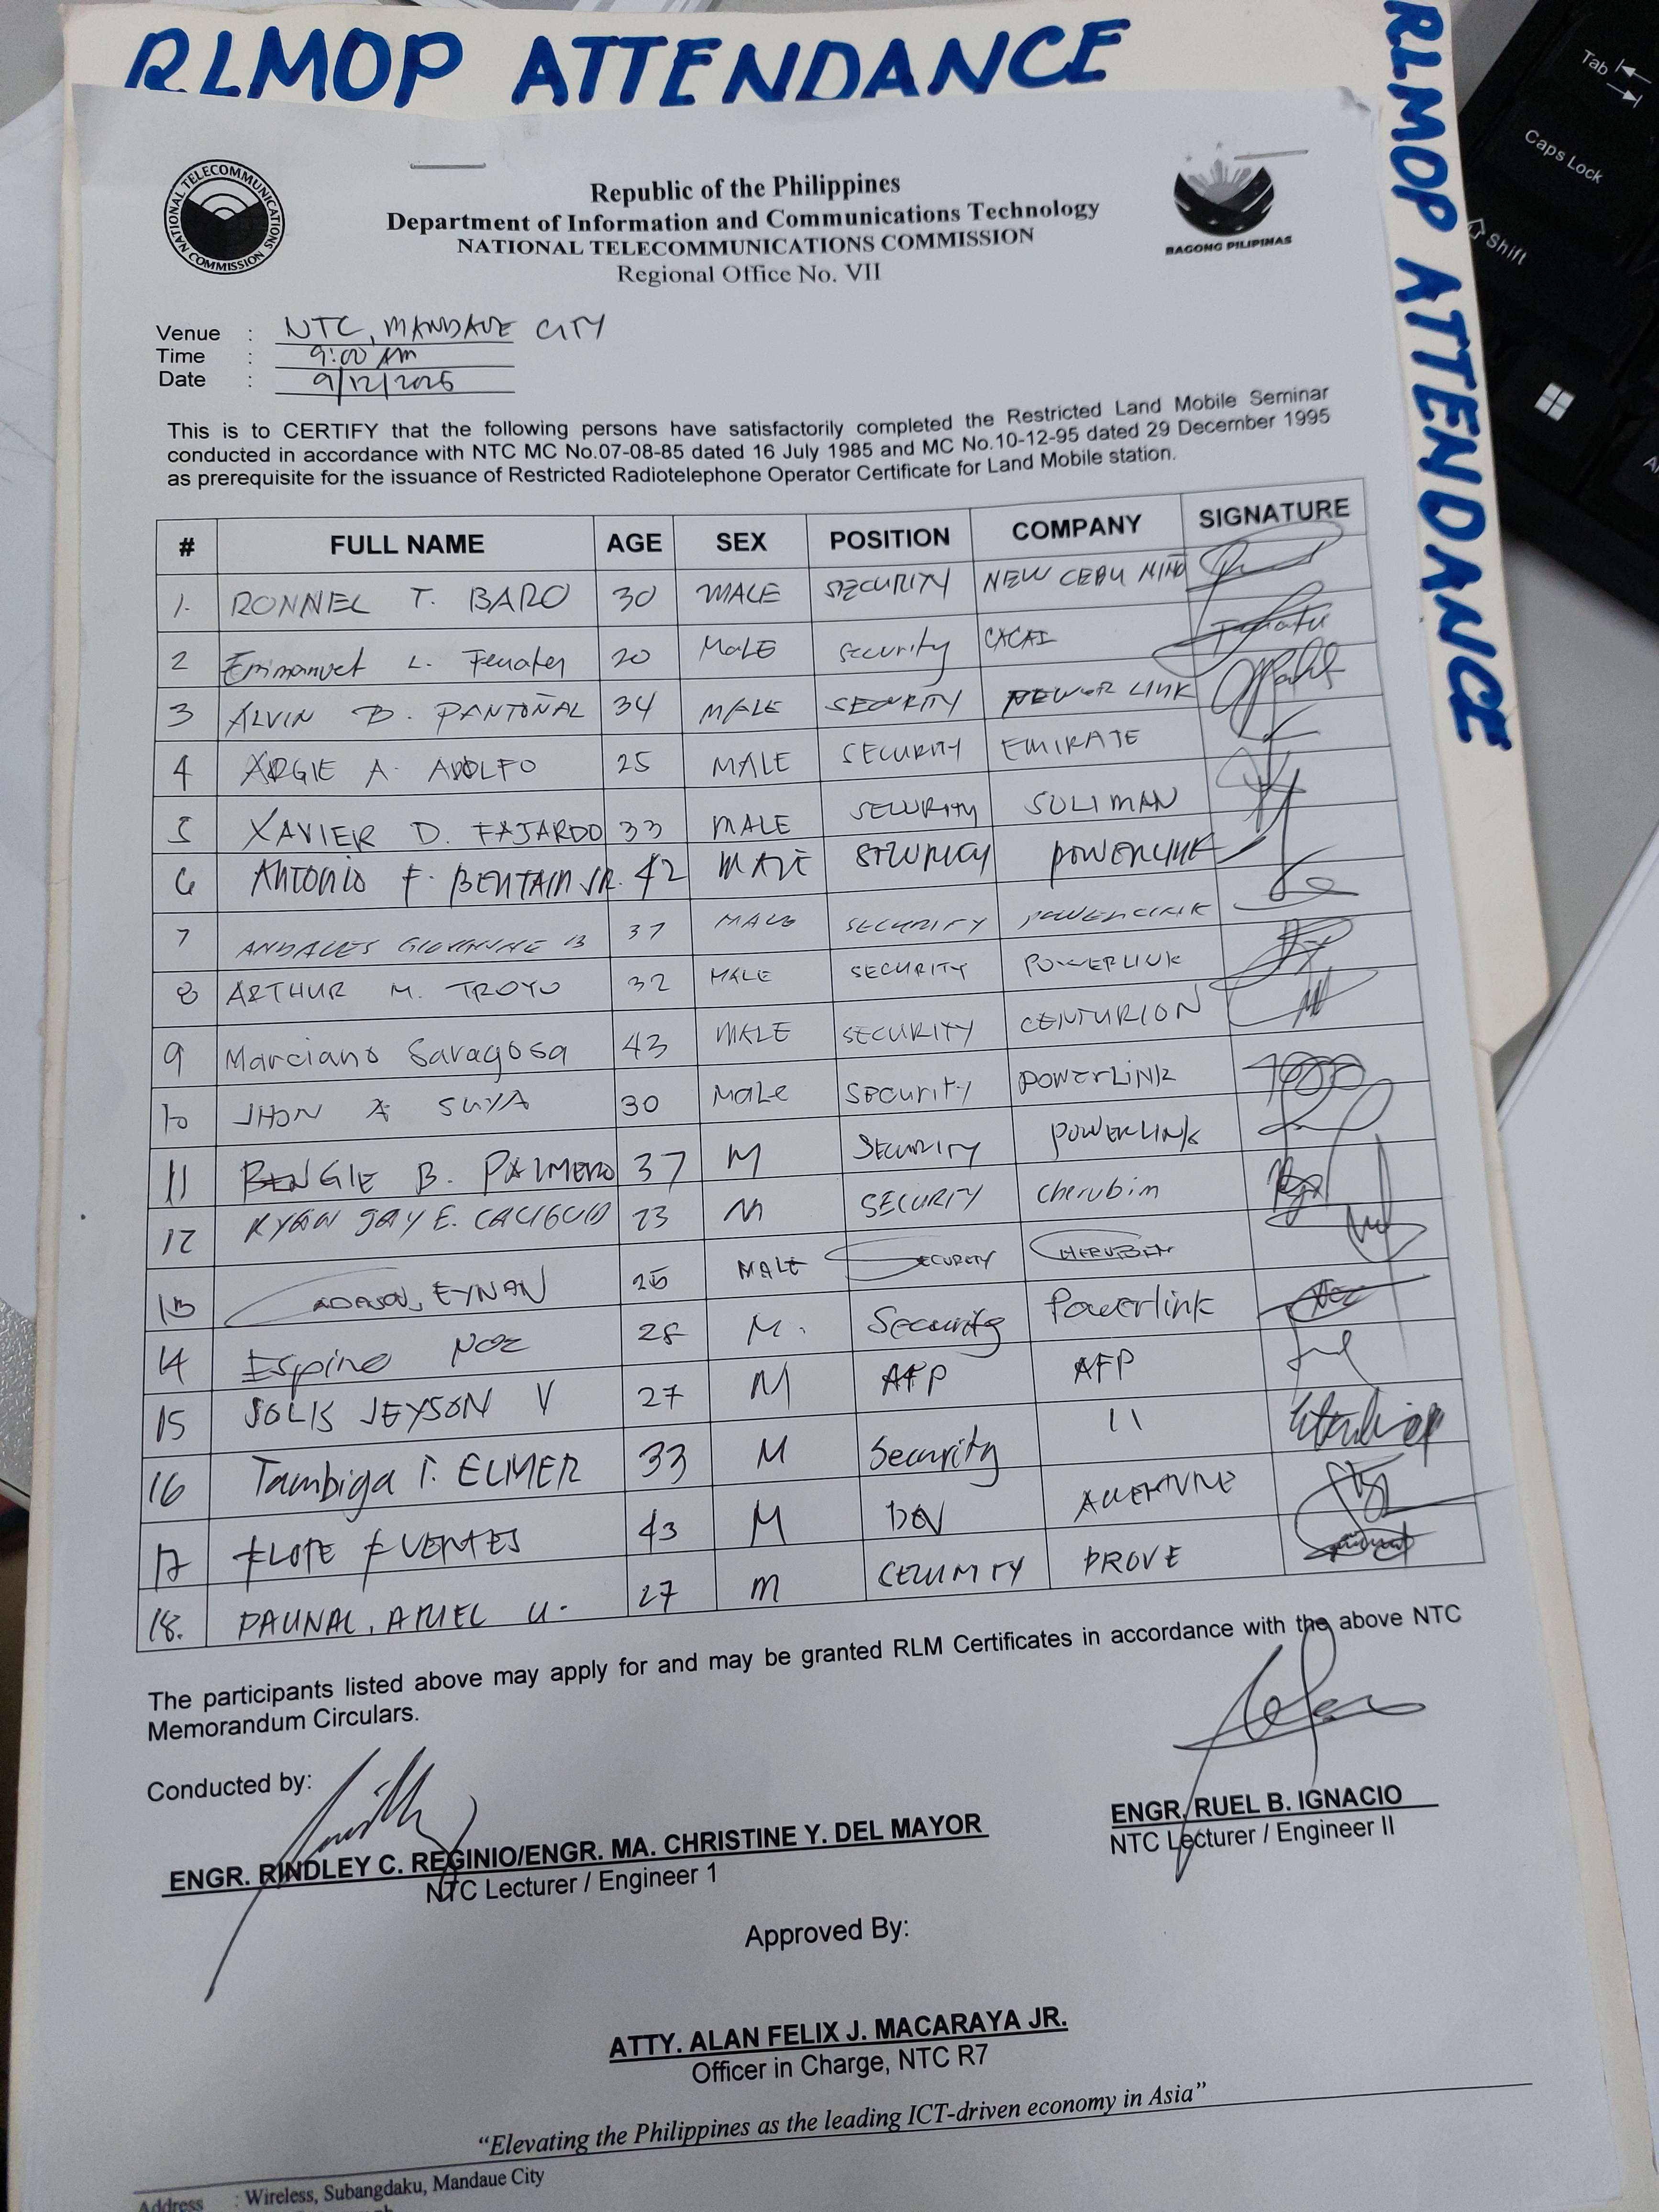 RLMOP ATTENDANCE
RLMOP ATTENDANCE
NATIONAL TELECOMMUNICATIONS COMMISSION
Republic of the Philippines
Department of Information and Communications Technology
NATIONAL TELECOMMUNICATIONS COMMISSION
Regional Office No. VII
BAGONG PILIPINAS
Venue : NTC, MANDAUE CITY
Time : 9:00 AM
Date : 9/12/2025
This is to CERTIFY that the following persons have satisfactorily completed the Restricted Land Mobile Seminar
conducted in accordance with NTC MC No.07-08-85 dated 16 July 1985 and MC No.10-12-95 dated 29 December 1995
as prerequisite for the issuance of Restricted Radiotelephone Operator Certificate for Land Mobile station.
# FULL NAME AGE SEX POSITION COMPANY SIGNATURE
1. RONNEL T. BARO 30 MALE SECURITY NEW CEBU
2 Emmanuel L. 20 MALE Security
3 ALVIN B. PANTOÑAL 34 MALE SECURITY POWER LINK
4 ARGIE A. ADOLFO 25 MALE SECURITY EMIRATE
5 XAVIER D. FAJARDO 33 MALE SECURITY SULIMAN
6 ANTONIO F. BENTAIN JR. 42 MALE SECURITY POWERLINK
7 ANDALES GIOVANNE B 37 MALE SECURITY POWERLINK
8 ARTHUR M. TROYO 32 MALE SECURITY POWERLINK
9 Marciano Saragosa 43 MALE SECURITY CENTURION
10 JHON A SUYA 30 MALE Security POWERLINK
11 BENGIE B. PALMERO 37 M SECURITY POWERLINK
12 RYAN JAY E. 23 M SECURITY cherubim
13 EYNAN MALE SECURITY CHERUBIM
14 Espino NOE 28 M. Security Powerlink
15 SOLIS JEYSON V 27 M AFP AFP
16 Tambiga T. ELMER 33 M Security 11
17 FLOTE FUENTES 43 M
18. PAUNAL, ARIEL U. 27 M CECURITY PROVE
The participants listed above may apply for and may be granted RLM Certificates in accordance with the above NTC
Memorandum Circulars.
Conducted by:
ENGR. RINDLEY C. REGINIO/ENGR. MA. CHRISTINE Y. DEL MAYOR
NTC Lecturer / Engineer 1
ENGR. RUEL B. IGNACIO
NTC Lecturer / Engineer II
Approved By:
ATTY. ALAN FELIX J. MACARAYA JR.
Officer in Charge, NTC R7
“Elevating the Philippines as the leading ICT-driven economy in Asia”
Address : Wireless, Subangdaku, Mandaue City
Tab
Caps Lock
Shift